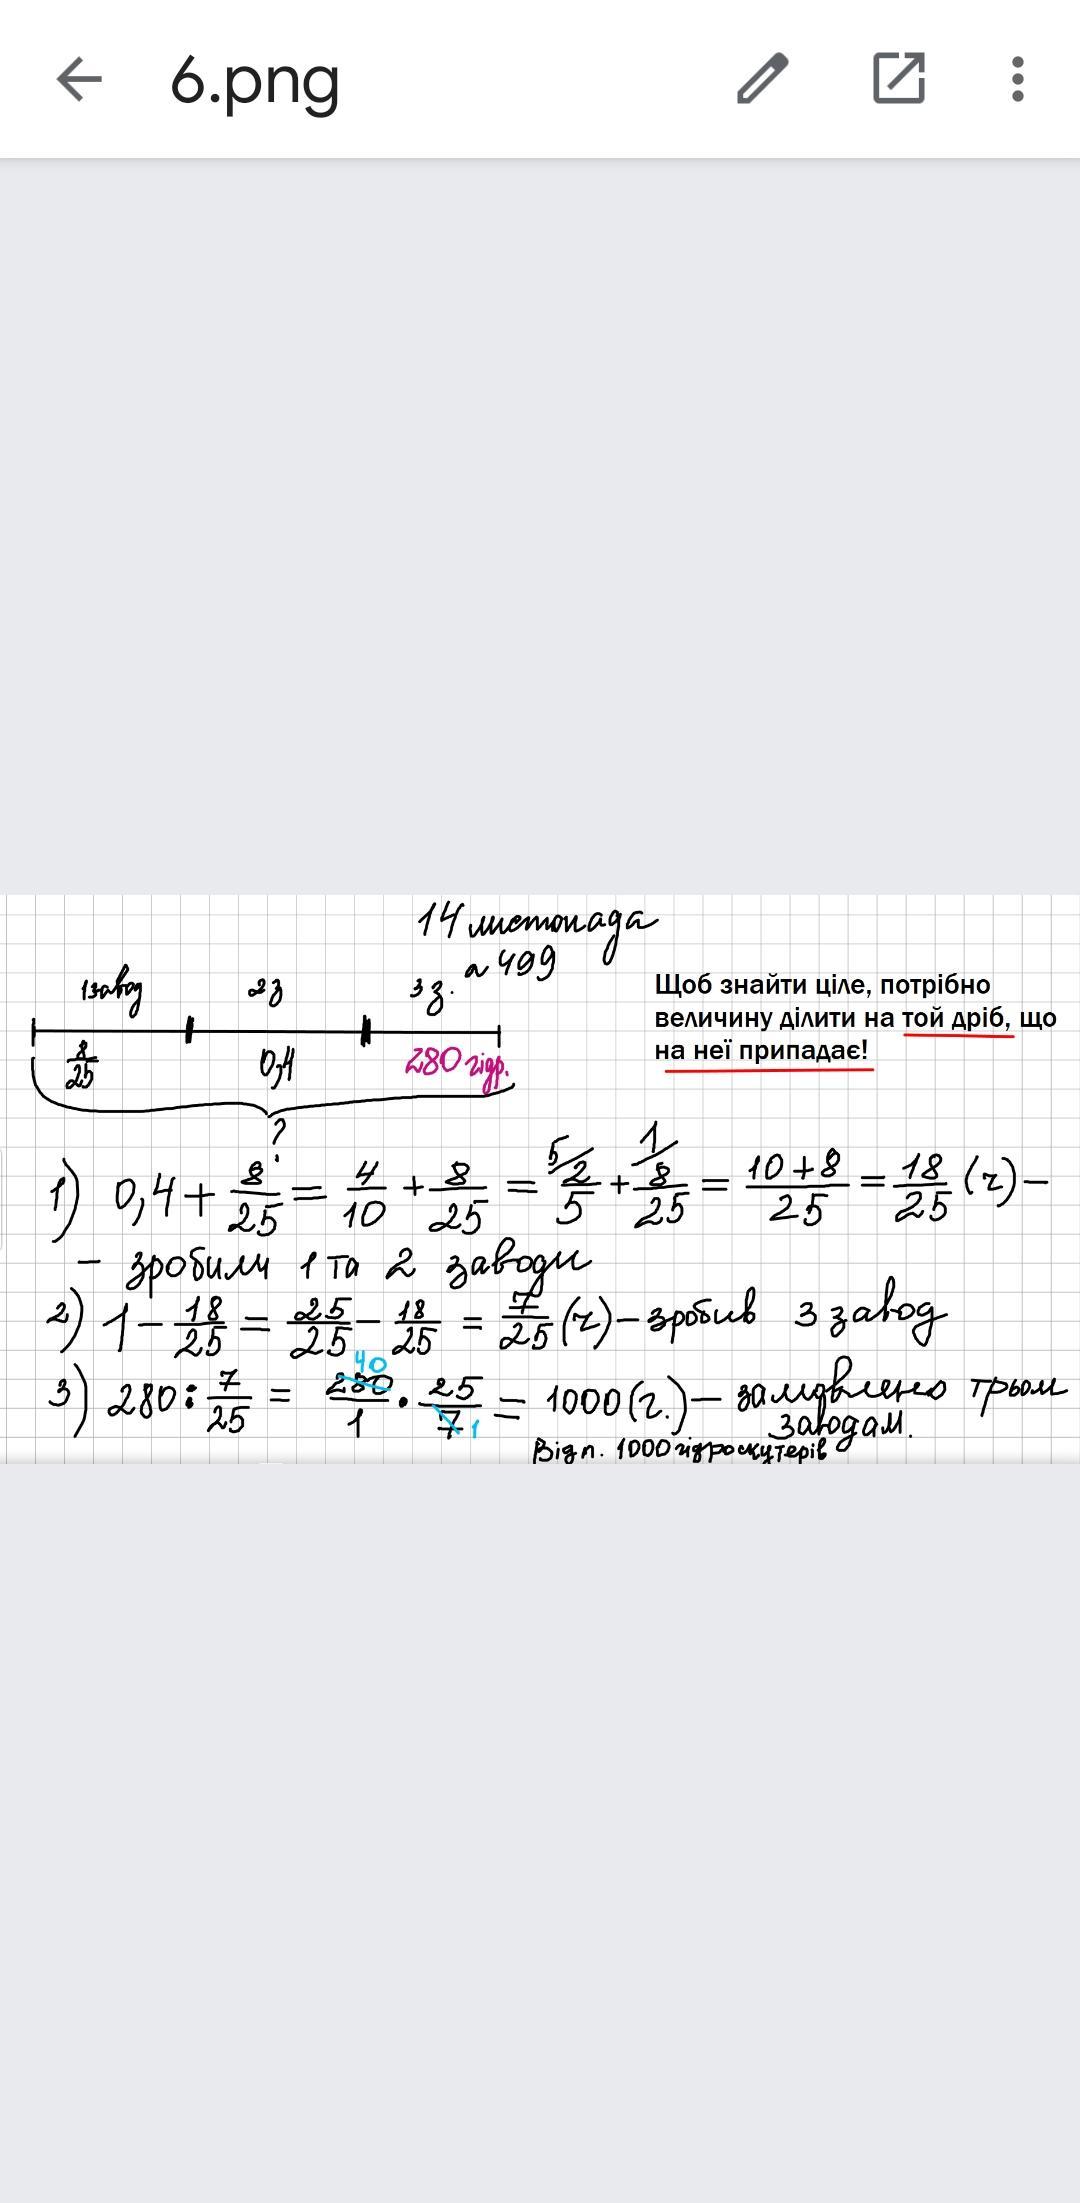 6.png
14 листопада
№ 499
1 завод 2 з 3 з.
8/25 0,4 280 гідр.
?
Щоб знайти ціле, потрібно
величину ділити на той дріб, що
на неї припадає!
1) 0,4 + 8/25 = 4/10 + 8/25 = 5/ 2/5 + 1/ 8/25 = 10+8/25 = 18/25 (ч) –
– зробили 1 та 2 заводи
2) 1 – 18/25 = 25/25 – 18/25 = 7/25 (ч) – зробив 3 завод
3) 280 : 7/25 = 280/1 40 · 25/7 1 = 1000 (г.) – замовлено трьом
заводам.
Відп. 1000 гідроскутерів